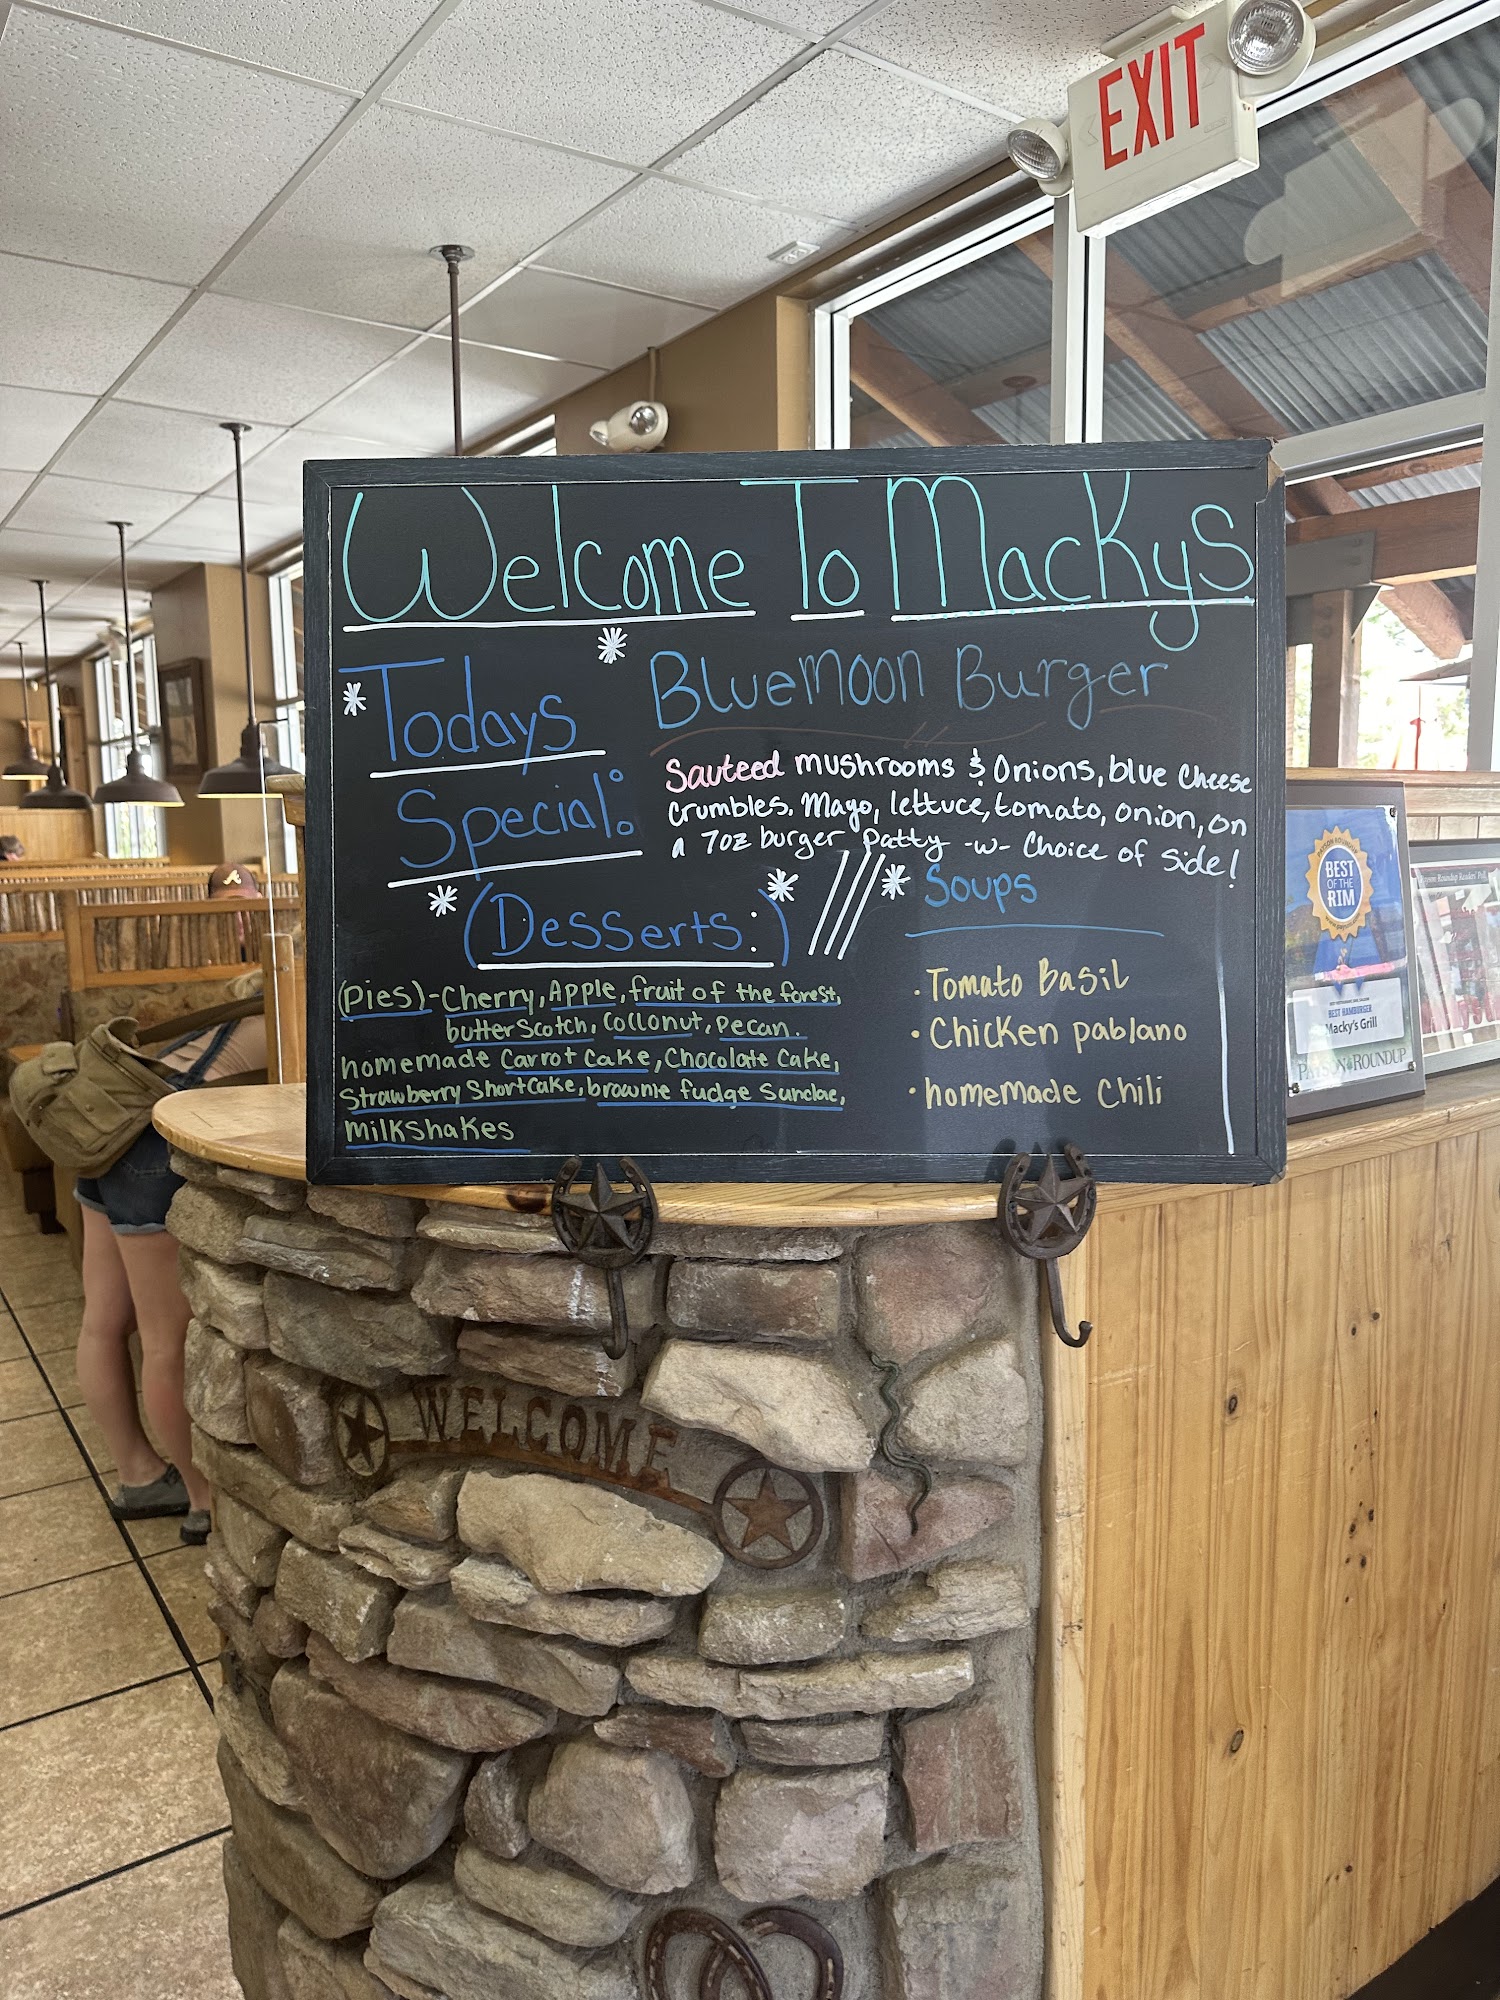 EXIT
Welcome To Mackys
Todays
Special:
Bluemoon Burger
Sauteed mushrooms & Onions, blue cheese
crumbles. Mayo, lettuce, tomato, onion, on
a 7oz burger patty -w- Choice of side!
(Desserts:)
(pies)-Cherry, Apple, fruit of the forest,
butterscotch, Coconut, pecan.
homemade Carrot Cake, Chocolate Cake,
Strawberry Shortcake, brownie fudge Sundae,
milkshakes
Soups
· Tomato Basil
· Chicken pablano
· homemade Chili
BEST
OF THE
RIM
BEST HAMBURGER
Macky's Grill
PAYSON ROUNDUP
Payson Roundup Readers' Poll
WELCOME